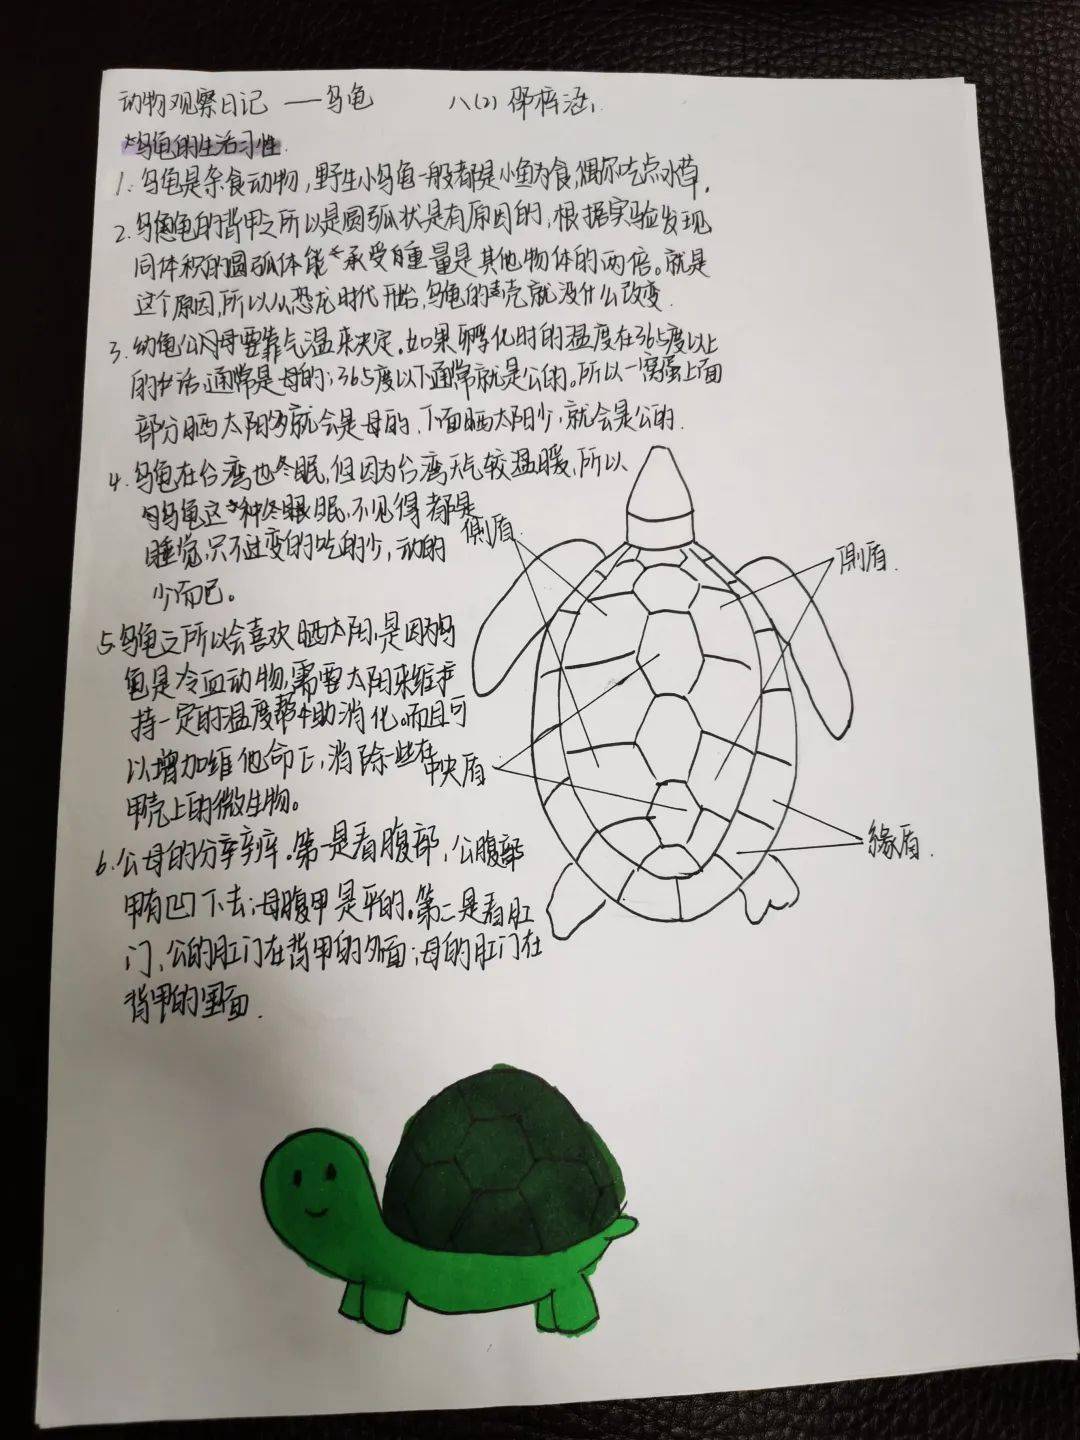 动物观察日记 ——乌龟 八(2)
*乌龟的生活习性.
1. 乌龟是杂食动物,野生小乌龟一般都是小鱼为食,偶尔吃点水草.
2. 乌龟龟的背甲之所以是圆弧状是有原因的,根据实验发现
同体积的圆弧体能承受的重量是其他物体的两倍。就是
这个原因,所以从恐龙时代开始,乌龟的壳就没什么改变.
3. 幼龟公母要靠气温来决定.如果孵化时的温度在36.5度以上
的话,通常是母的;36.5度以下通常就是公的。所以一窝蛋上面
部分晒太阳多就会是母的,下面晒太阳少,就会是公的.
4. 乌龟在台湾也冬眠,但因为台湾天气较温暖,所以
乌龟这种冬眠,不见得都是
睡觉,只不过变的吃的少,动的
少而已。
5. 乌龟之所以会喜欢晒太阳,是因为乌
龟是冷血动物,需要太阳来维
持一定的温度帮助消化。而且可
以增加维他命E,消除一些在
甲壳上的微生物。
6. 公母的分辨.第一是看腹部,公腹部
甲有凹下去;母腹甲是平的.第二是看肛
门,公的肛门在背甲的外面;母的肛门在
背甲的里面.
側盾.
側盾.
中央盾
緣盾.